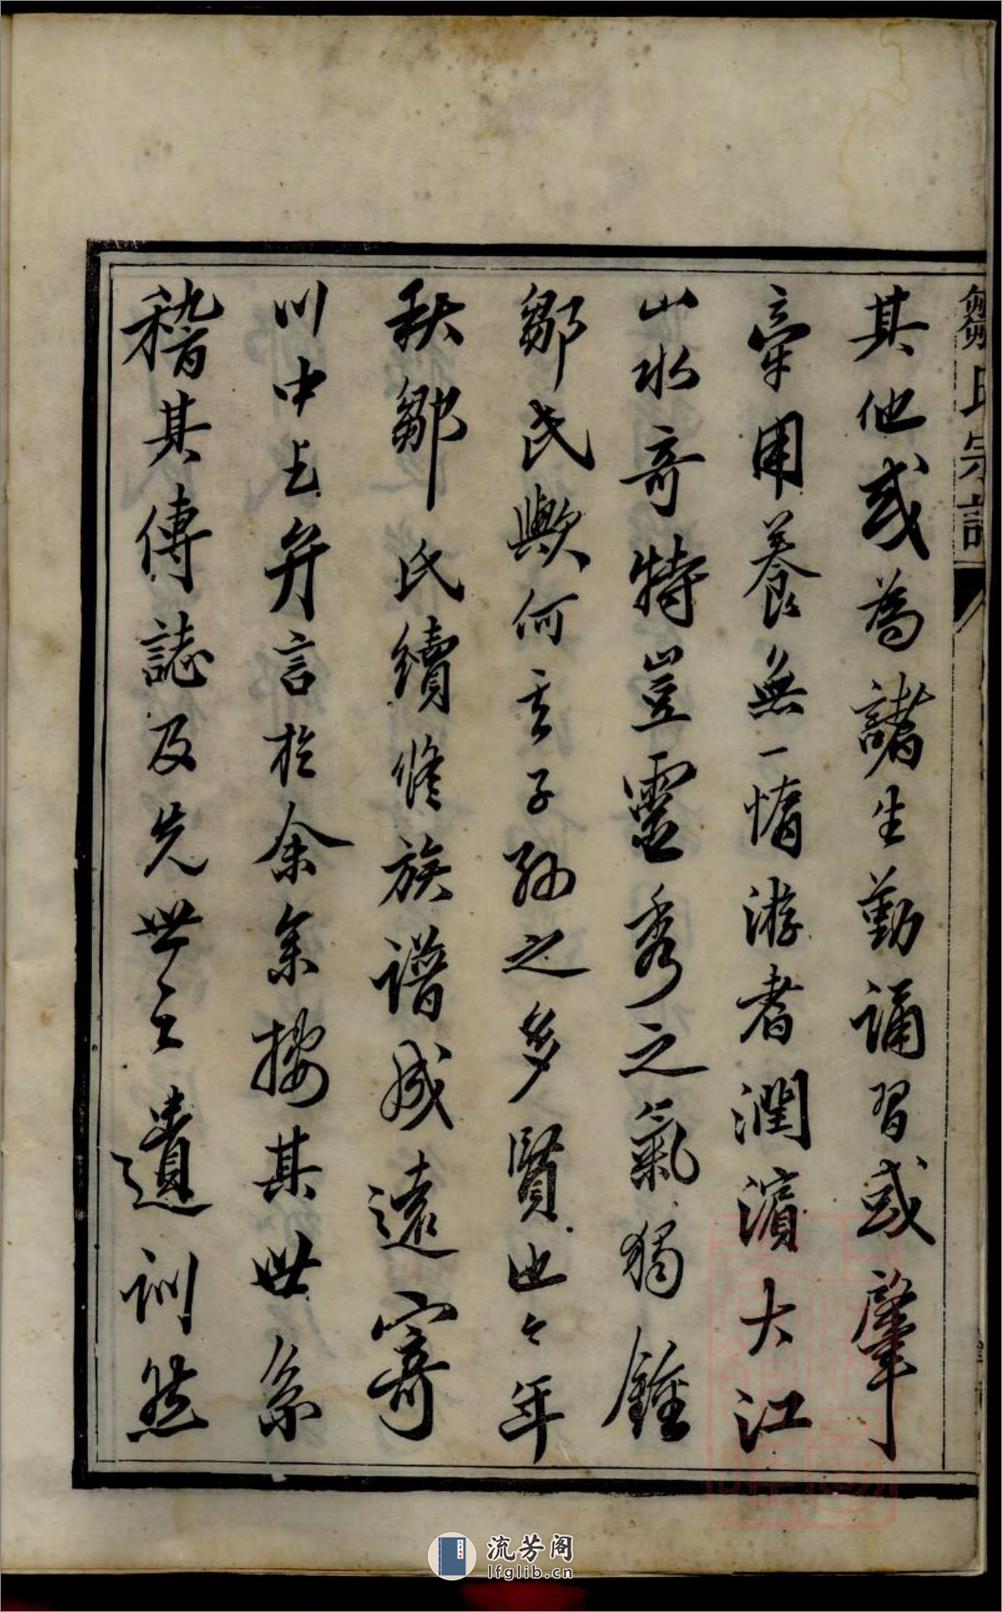 其他或為諸生勤誦習或肇
牽用養無一惰游者潤濱大江
山水奇特豈靈秀之氣獨鍾
鄒氏歟何其子孫之多賢也今年
秋鄒氏續修族譜成遠寄
川中乞弁言於余余按其世系
稽其傳誌及先世之遺訓然
氏宗譜
流芳阁
lfglib.cn